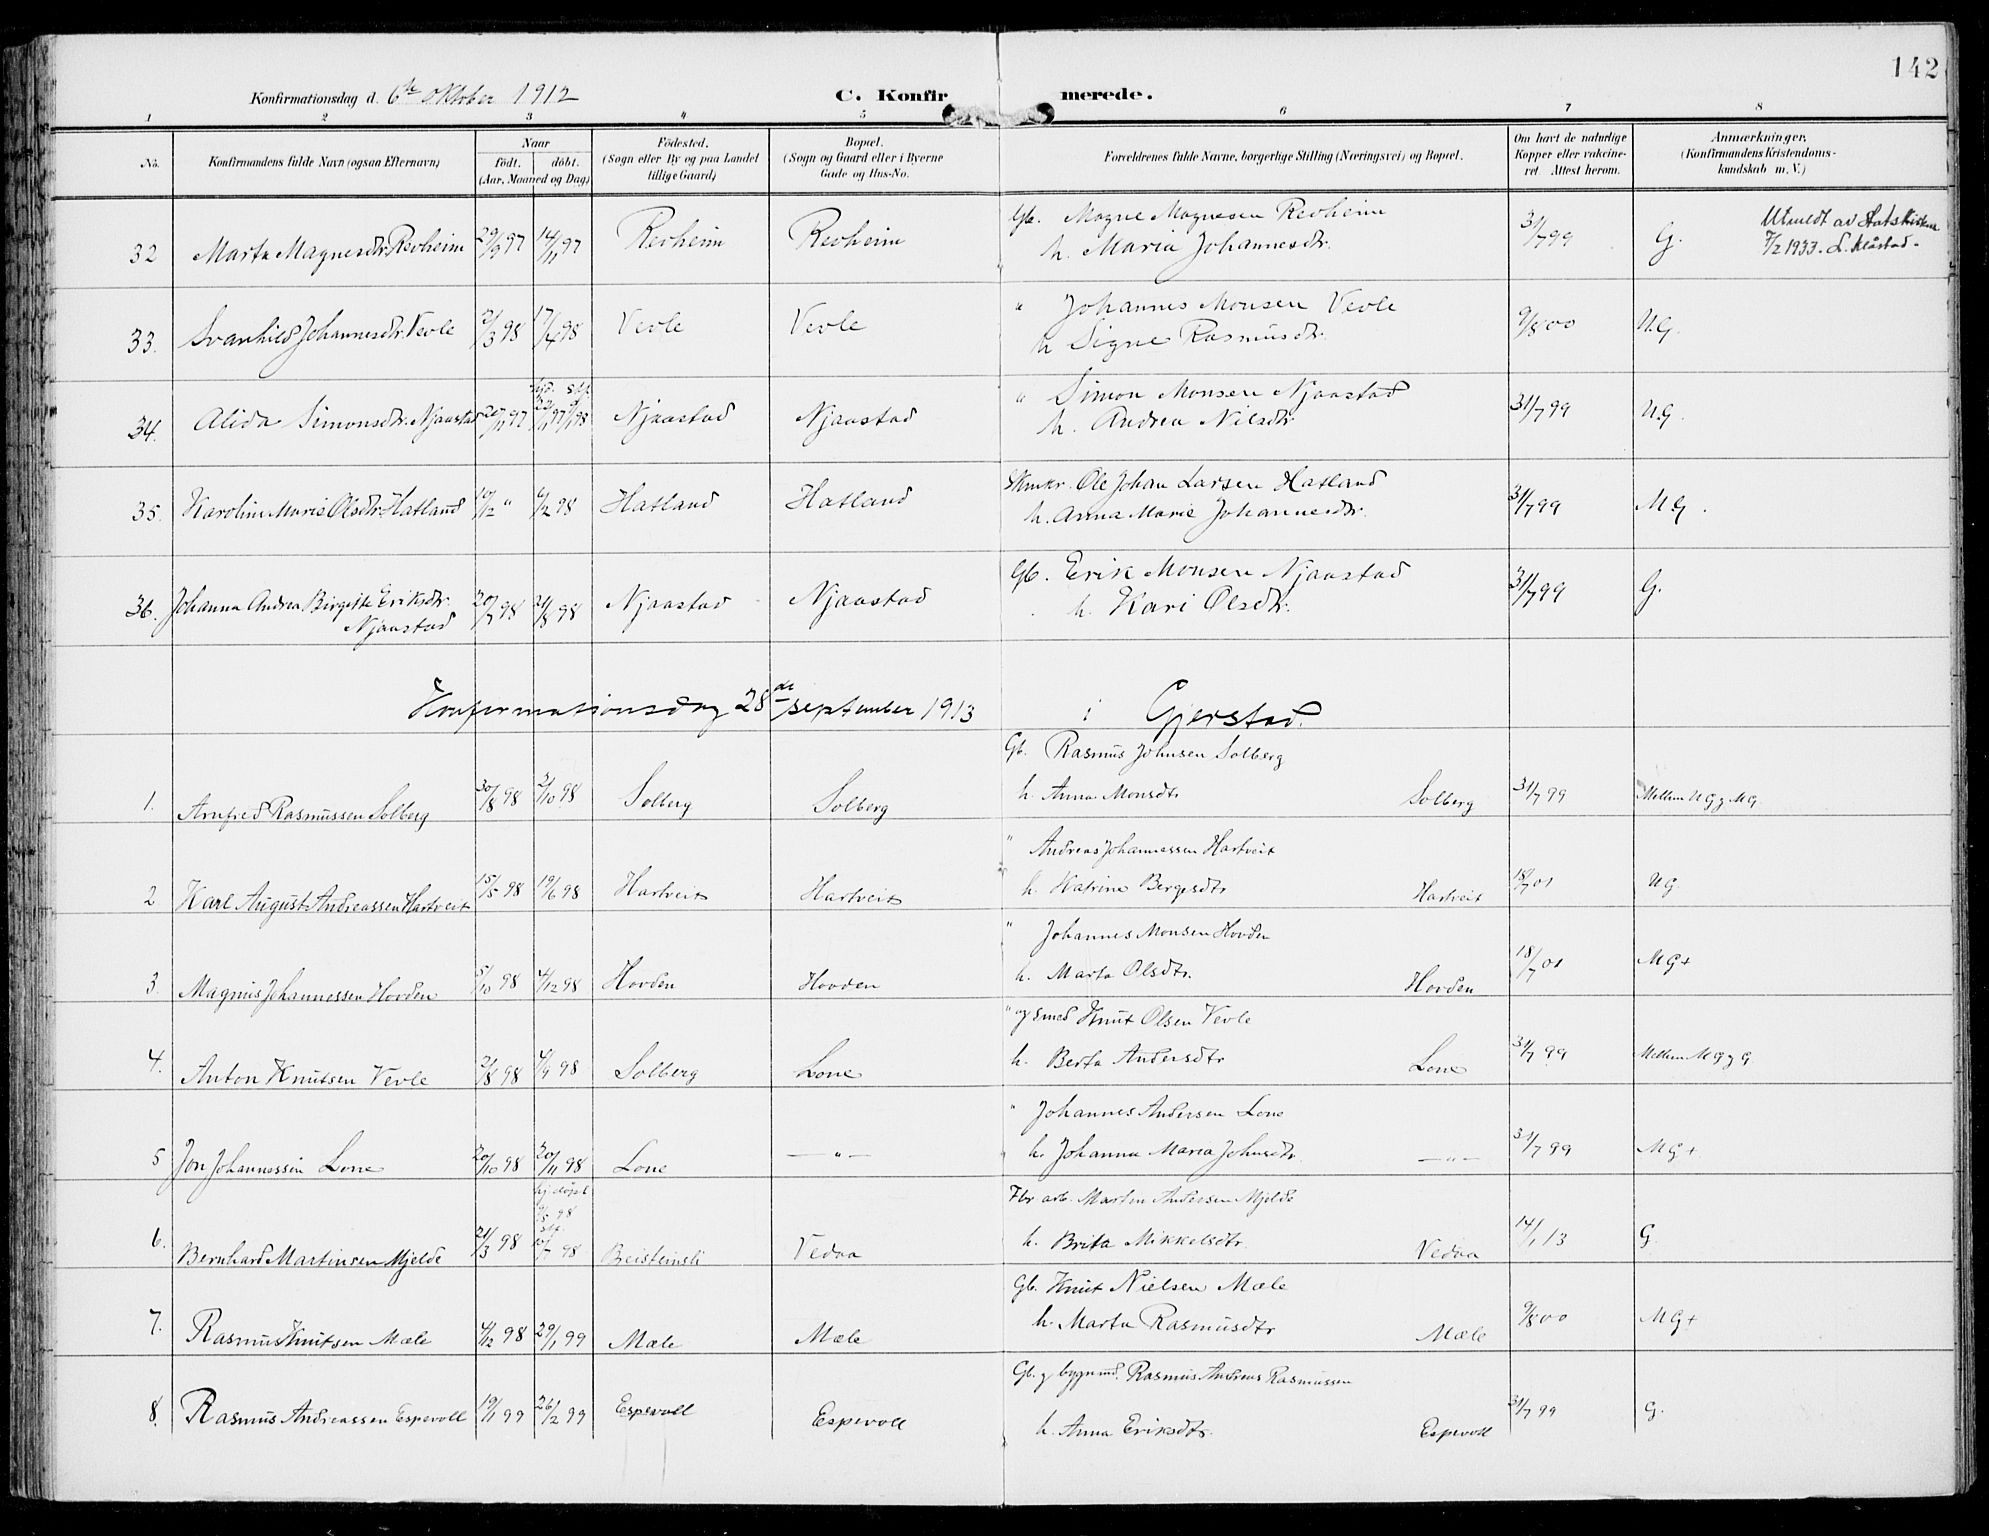 142
Konfirmationsdag d. 6te oktober 1912 C. Konfirmerede.
1 2 3 4 5 6 7 8
No. Konfirmandens fulde Navn (ogsaa Efternavn) Naar født. døbt. (Aar, Maaned og Dag) Fødested. (Sogn eller By og paa Landet tillige Gaard) Bopæl. (Sogn og Gaard eller i Byerne Gade og Hus-No. Forældrenes fulde Navne, borgerlige Stilling (Næringsvei) og Bopæl. Om havt de naturlige Kopper eller vakcineret. Attest herom. Anmærkninger. (Konfirmandens Kristendomskundskab m. V.)
32 Marta Magnesdtr. Revheim 29/9 97 14/11 97 Revheim Revheim Gb. Magne Magnesen Revheim 31/7 99 G. Utmeldt av Statskirken
h. Maria Johannesdtr. 7/2 1933. L. Kløstad.
33. Svanhild Johannesdtr. Vevle 2/3 98 17/4 98 Vevle Vevle " Johannes Monsen Vevle 9/8 00 M.G.
h Signe Rasmusdtr.
34. Alida Simonsdtr. Njaastad 20/11 97 22/11 97 9/1 98 Njaastad Njaastad " Simon Monsen Njaastad 31/7 99 M.G.
h. Andrea Nilsdtr
35. Karoline Marie Olsdtr. Hatland 10/12 " 6/2 98 Hatland Hatland Ole Johan Larsen Hatland 31/7 99 M.G.
h. Anna Marie Johannesdtr.
36. Johanna Andrea Birgitte Eriksdtr. 20/7 98 21/8 98 Njaastad Njaastad Gb. Erik Monsen Njaastad 31/7 99 G.
Njaastad h. Kari Olsdtr.
Konfirmationsdag 28de september 1913 i Gjerstad.
Gb. Rasmus Johnsen Solberg
1. Arnfred Rasmussen Solberg 30/8 98 2/10 98 Solberg Solberg h. Anna Monsdtr Solberg 31/7 99 Mellem MG og MG.
" Andreas Johannessen Hartveit
2 Karl August Andreassen Hartveit 15/5 98 19/6 98 Hartveit Hartveit h. Katrine Bergesdtr Hartveit 18/7 01 MG
" Johannes Monsen Hovden
3. Magnus Johannessen Hovden 5/10 98 4/12 98 Hovden Hovden h. Marta Olsdtr. Hovden 18/7 01 MG+
" og smed Knut Olsen Vevle
4. Anton Knutsen Vevle 2/8 98 4/9 98 Solberg Lone h. Berta Andersdtr Lone 31/7 99 Mellem MG og G.
" Johannes Andersen Lone
5 Jon Johannessen Lone 20/10 98 20/11 98 Lone — " — h. Johanna Maria Johnsdtr. — " — 31/7 99 MG+
hj. døpt
98
Fbr. arb. Martin Andersen Mjelde
6. Bernhard Martinsen Mjelde 21/3 98 10/7 98 Beisteinsli Vedaa h. Brita Mikkelsdtr. Vedaa 14/1 13 G.
Gb. Knut Nielsen Mæle
7. Rasmus Knutsen Mæle 4/12 98 29/1 99 Mæle Mæle h. Marta Rasmusdtr Mæle 9/8 00 MG+
Gb. og bygnmd. Rasmus Andreas Rasmussen
8. Rasmus Andreassen Espevoll 19/1 99 26/2 99 Espevoll Espevoll h. Anna Eriksdtr. Espevoll 31/7 99 G.